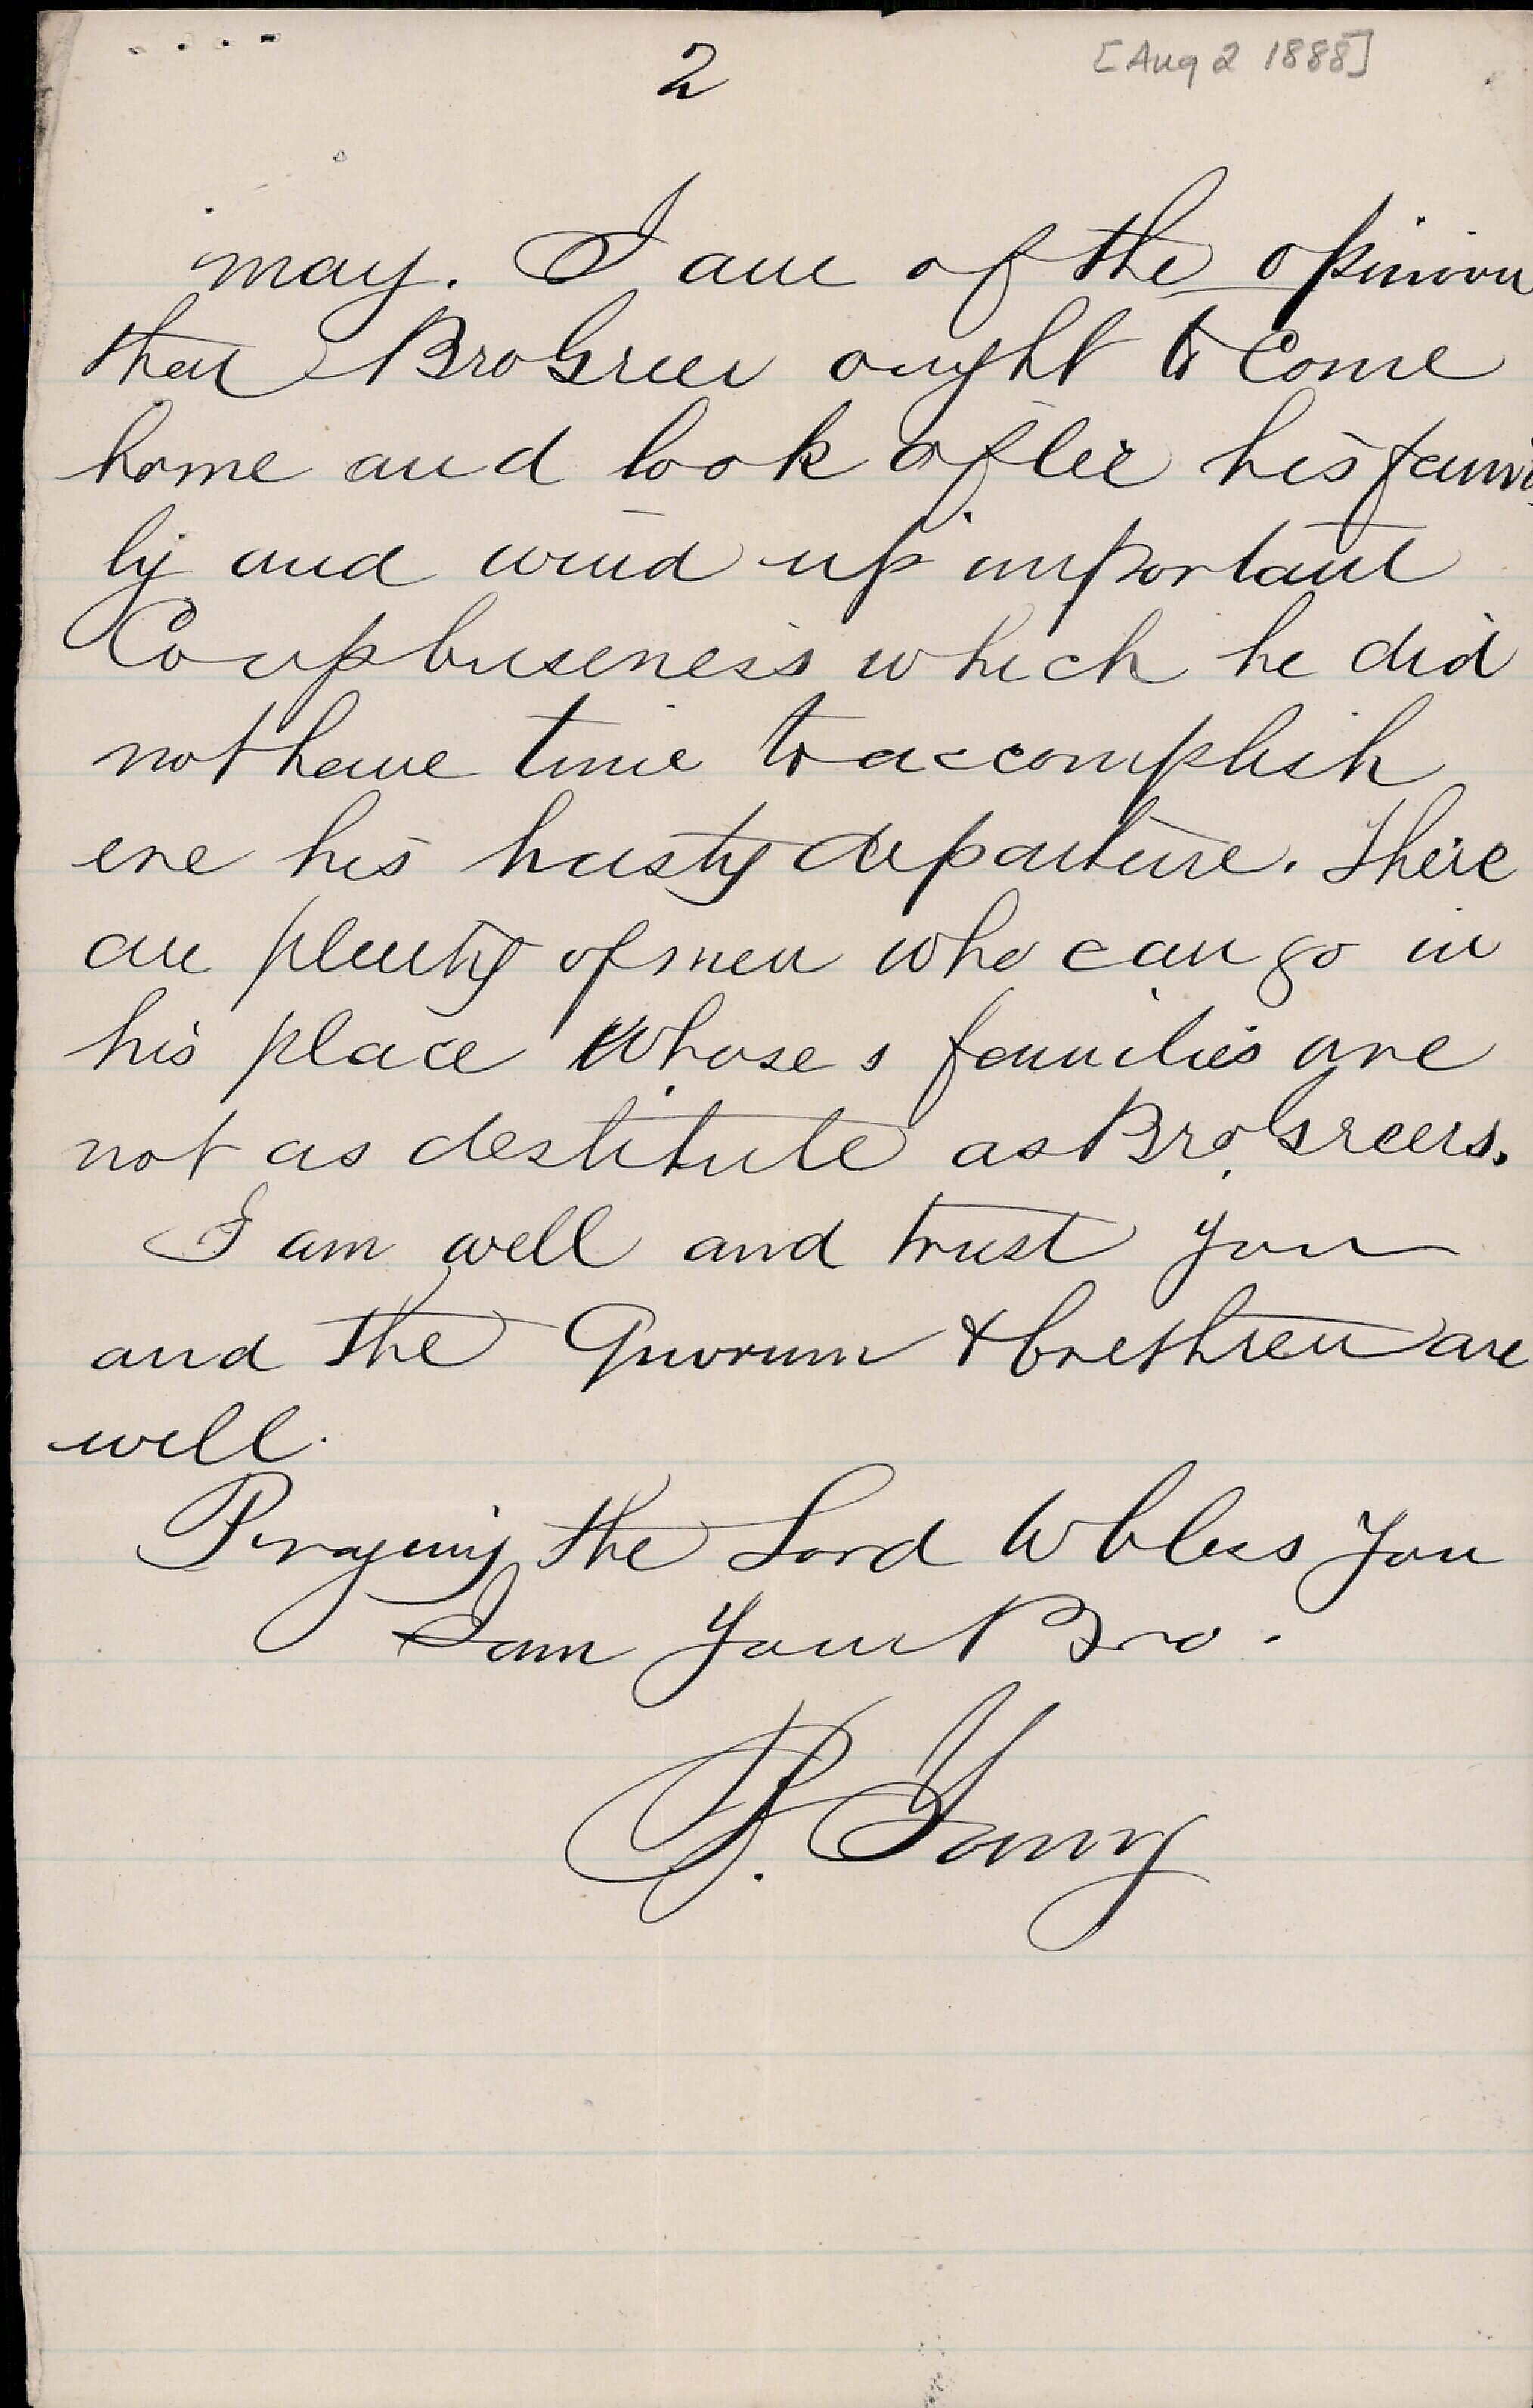 2
[Aug 2 1888]
may. I am of the opinion
that Bro Greer ought to Come
home and look after his fami
ly and wind up important
Co op buseness which he did
not have time to accomplish
ere his hasty departure. There
are plenty of men who can go in
his place whose s families are
not as destitute as Bro Greers.
I am well and trust you
and the Quorum & brethren are
well.
Praying the Lord to bless you
I am Your Bro.
B. Young